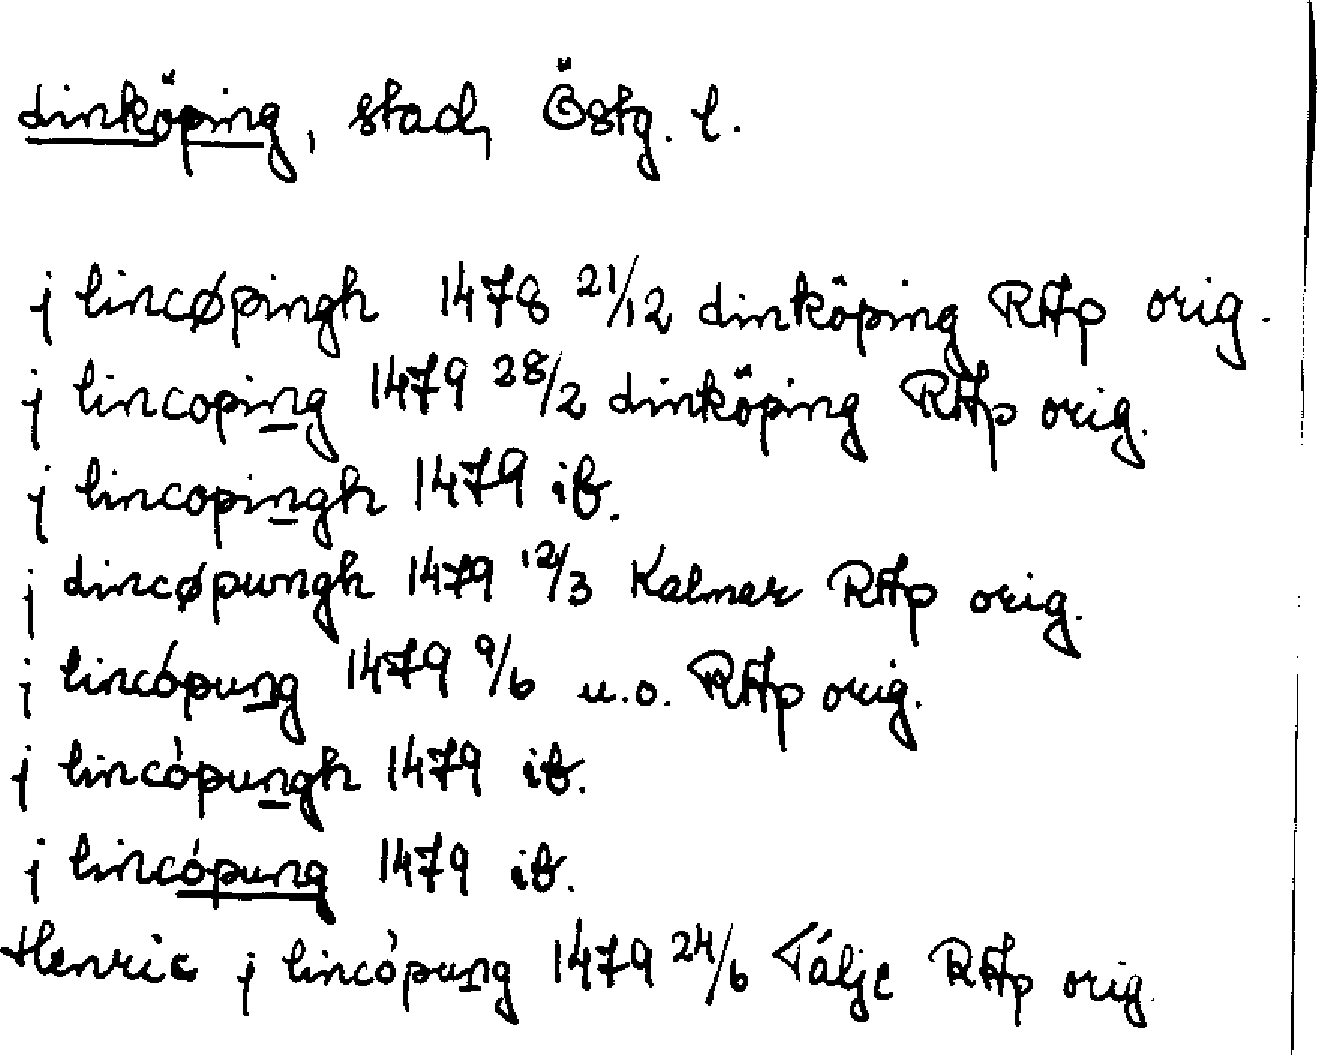 Linköping, stad, Östg. l.
j lincøpingh 1478 21/12 Linköping RAp orig.
j lincoping 1479 28/2 Linköping RAp orig.
j lincopingh 1479 ib.
j Lincøpungh 1479 12/3 Kalmar RAp orig.
j lincópung 1479 9/6 u.o. RAp orig.
j lincópungh 1479 ib.
j lincópung 1479 ib.
Henric j lincópung 1479 24/6 Tälje RAp orig.